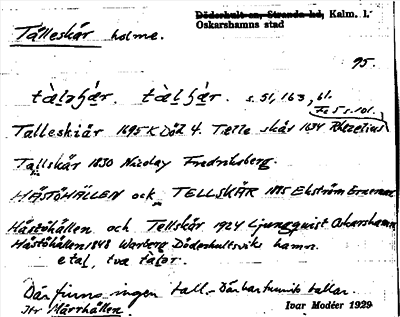 Döderhult sn, Stranda hd, Kalm. l.
Oskarshamns stad
Talleskär holme.
95.
s. 51, 163, 61.
Fe 5 s. 101.
Talleskiär 1695 K Döh 4. Telle skär 1634 Rhezelius
Tallskär 1850 Nicolay Fredriksberg.
HÅSTÖHÄLLEN och TELLSKÄR 1875 Ekström
Håstöhällen och Tellskär 1924 Ljungquist Oskarshamn
Håstöhällen 1848 Warberg Döderhultsvik hamn.
etal, två talor.
Där finns ingen tall. Där har funnits tallar.
Jfr Märrhällen.
Ivar Modéer 1929